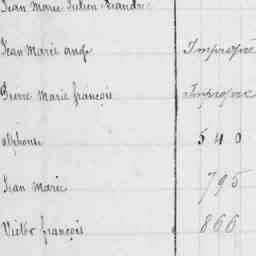 Jean Marie Julien Léandre
Jean Marie ange Impropre
Pierre Marie françois Impropre
alphonse 540
Jean Marie 795
Victor françois 866